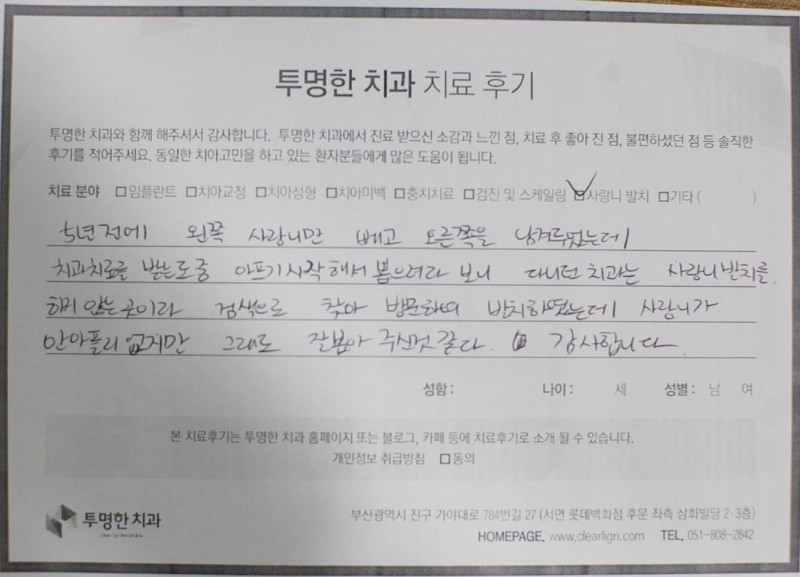 투명한 치과 치료 후기
투명한 치과와 함께 해주셔서 감사합니다. 투명한 치과에서 진료 받으신 소감과 느낀 점, 치료 후 좋아 진 점, 불편하셨던 점 등 솔직한
후기를 적어주세요. 동일한 치아고민을 하고 있는 환자분들에게 많은 도움이 됩니다.
치료 분야 □임플란트 □치아교정 □치아성형 □치아미백 □충치치료 □검진 및 스케일링 ☑사랑니 발치 □기타 ( )
5년전에 왼쪽 사랑니만 빼고 오른쪽을 남겨두었는데
치과치료를 받는도중 아프기시작해서 뽑으려라 보니 다니던 치과는 사랑니발치를
하지 않는곳이라 검색으로 찾아 방문하여 발치하였는데 사랑니가
안아플리 없지만 그래도 잘뽑아 주신것 같다. 감사합니다.
성함 : 나이 : 세 성별 : 남 여
본 치료후기는 투명한 치과 홈페이지 또는 블로그, 카페 등에 치료후기로 소개 될 수 있습니다.
개인정보 취급방침 □동의
투명한 치과
부산광역시 진구 가야대로 784번길 27 (서면 롯데백화점 후문 좌측 삼화빌딩 2·3층)
HOMEPAGE. www.clearlign.com TEL. 051-808-2842